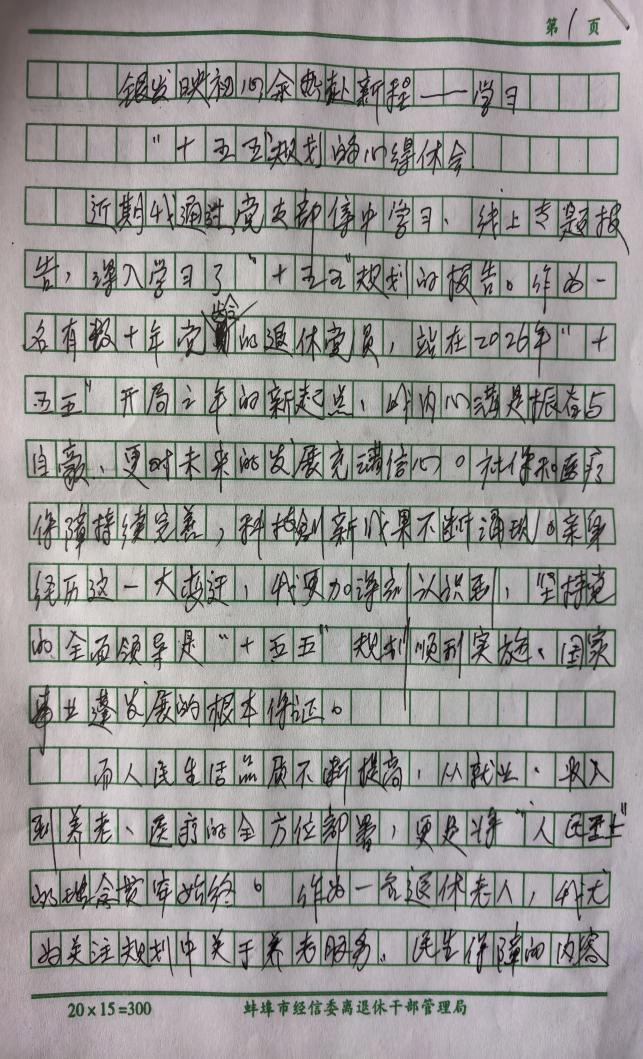 第1页
银发映初心余热赴新程——学习
"十五五"规划的心得体会
近期我通过党支部集中学习、线上专题报
告，深入学习了"十五五"规划的报告。作为一
名有数十年党龄的退休党员，站在2026年"十
五五"开局之年的新起点，我内心满是振奋与
自豪、更对未来的发展充满信心。社保和医疗
保障持续完善，科技创新成果不断涌现。亲身
经历这一大变迁，我更加深刻认识到，坚持党
的全面领导是"十五五"规划顺利实施、国家
事业蓬发展的根本保证。
而人民生活品质不断提高，从就业、收入
到养老、医疗的全方位部署，更是将"人民至上"
的理念贯穿始终。作为一名退休老人，我尤
为关注规划中关于养老服务、民生保障的内容
20×15=300
蚌埠市经信委离退休干部管理局